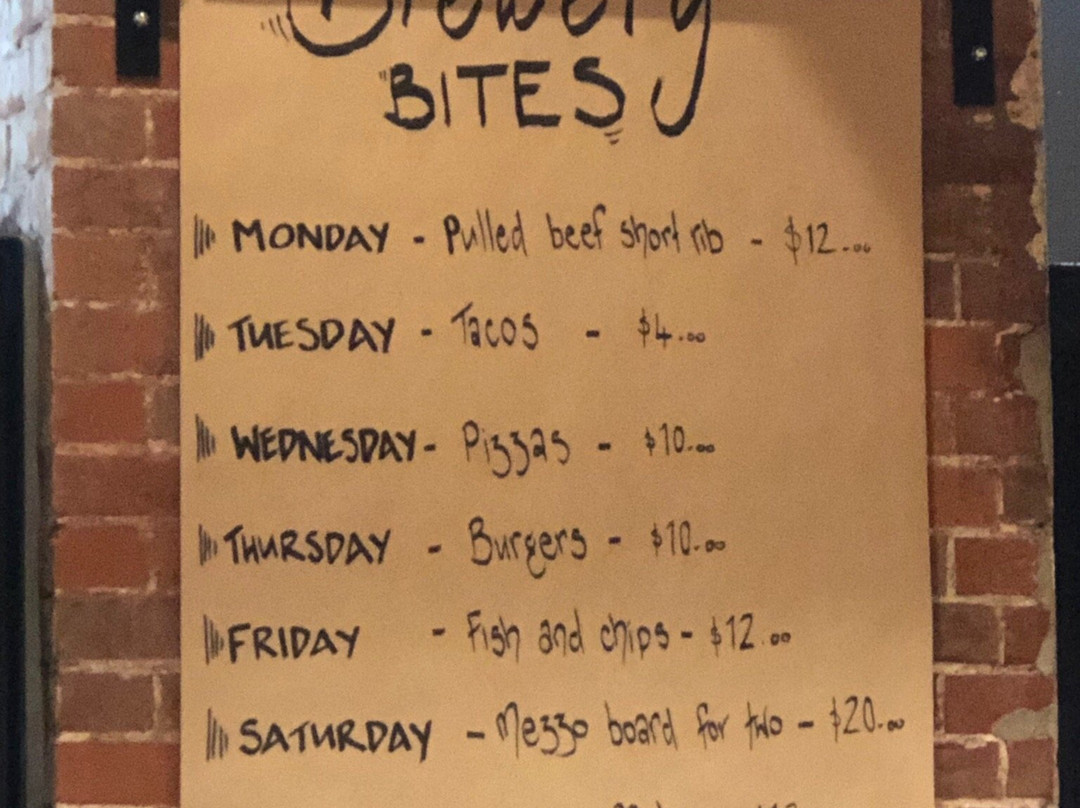 Brewery
BITES
MONDAY - Pulled beef short rib - $12.00
TUESDAY - Tacos - $4.00
WEDNESDAY - Pizzas - $10.00
THURSDAY - Burgers - $10.00
FRIDAY - Fish and chips - $12.00
SATURDAY - Mezzo board for two - $20.00